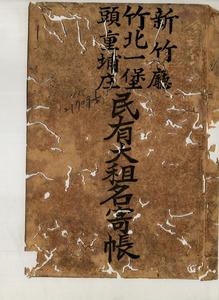 新竹廳
竹北一堡
頭重埔庄
民有大租名寄帳